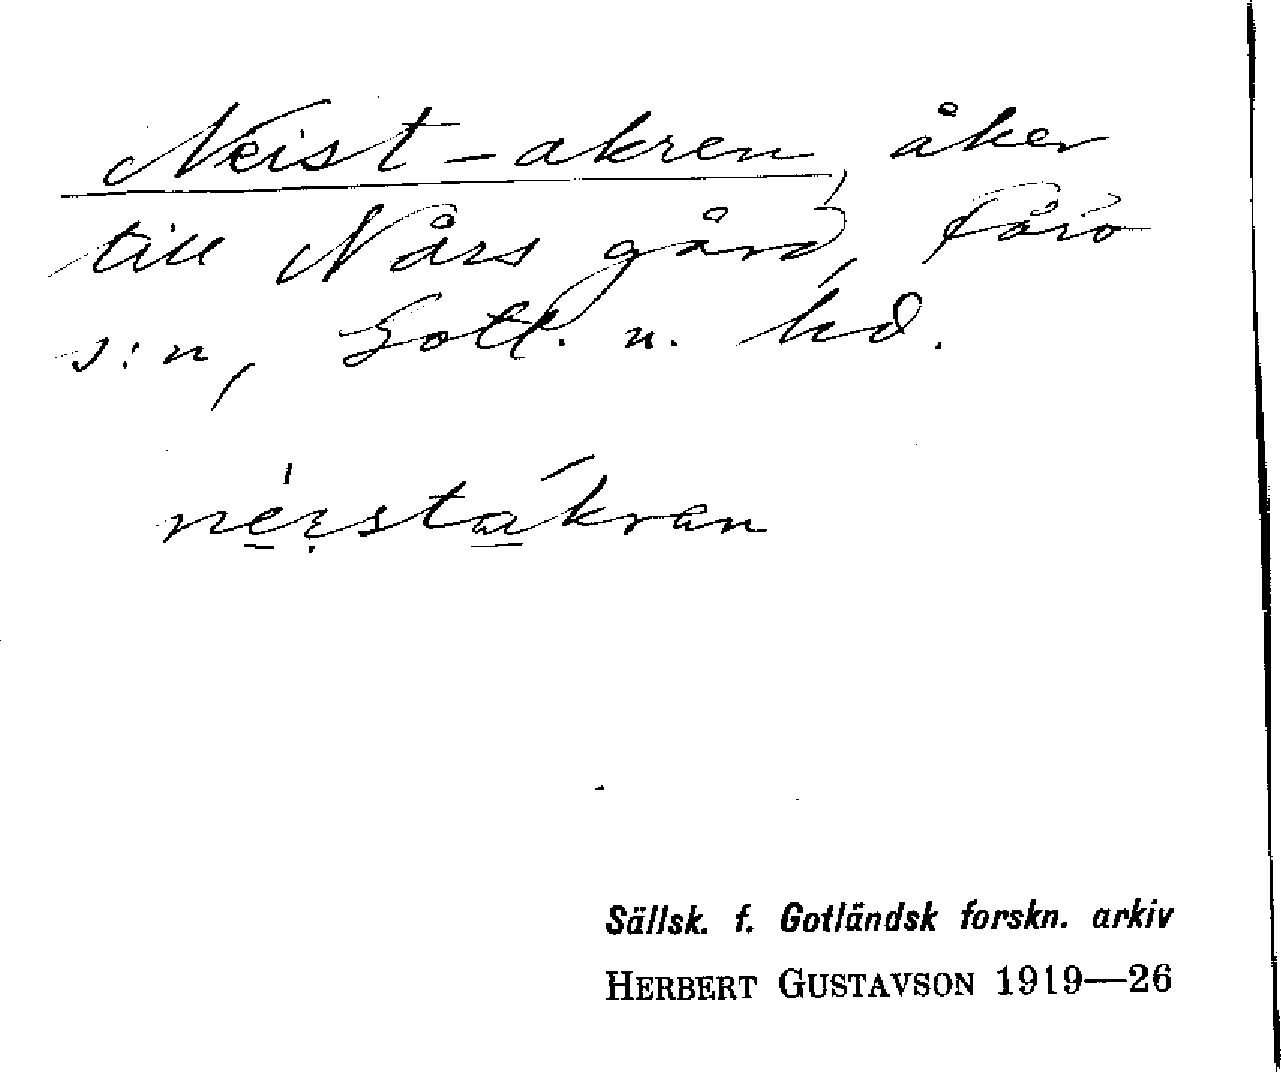 Neist-akren, åker
till Nårs gård, Fårö
s:n, Gotl. n. hd.
néistákran
Sällsk. f. Gotländsk forskn. arkiv
HERBERT GUSTAVSON 1919—26